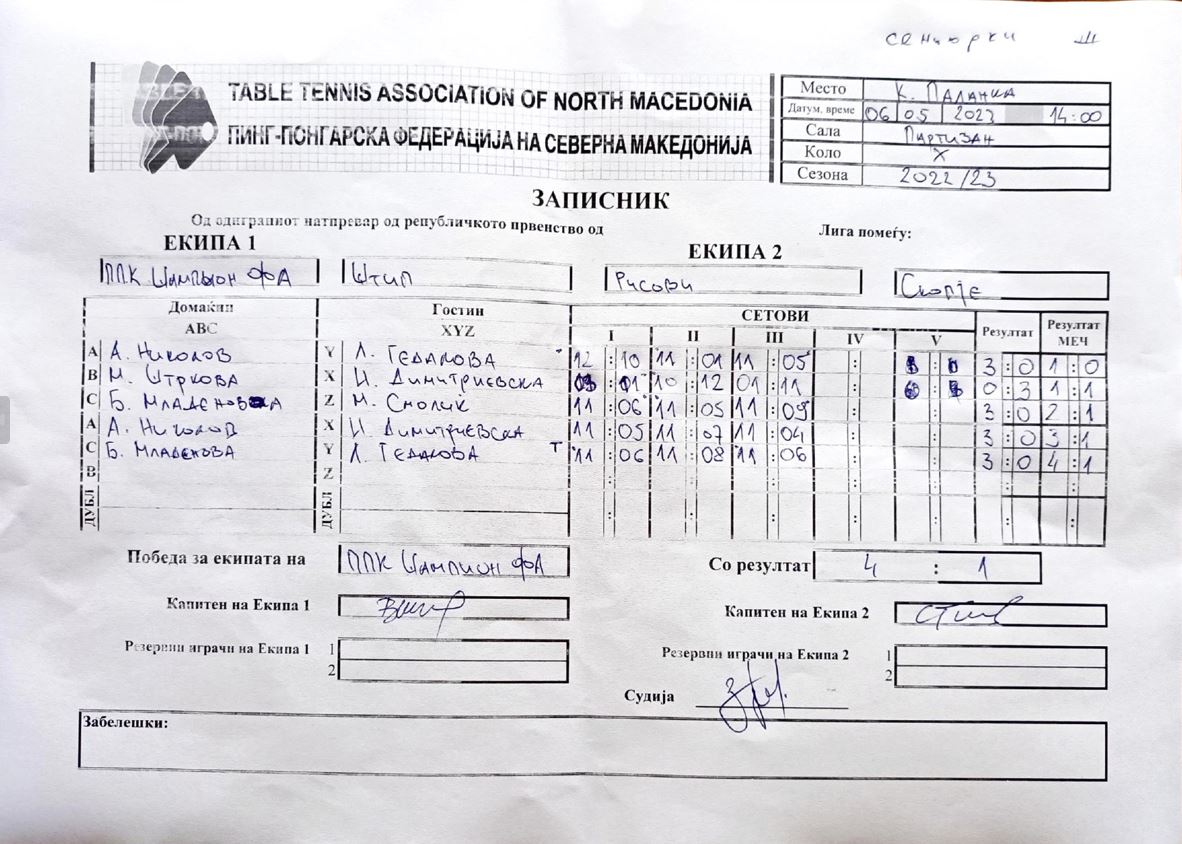 сениорки III
TABLE TENNIS ASSOCIATION OF NORTH MACEDONIA
ПИНГ-ПОНГАРСКА ФЕДЕРАЦИЈА НА СЕВЕРНА МАКЕДОНИЈА
Место К. ПАЛАНКА
Датум, време 06 05 2023 14:00
Сала ПАРТИЗАН
Коло X
Сезона 2022/23
ЗАПИСНИК
Од одиграниот натпревар од републичкото првенство од Лига помеѓу:
ЕКИПА 1 ЕКИПА 2
ППК Шампион ФА Штип Рисови Скопје
Домаќин Гостин СЕТОВИ Резултат Резултат МЕЧ
ABC XYZ I II III IV V
A А. Николов Y Л. ГЕДАКОВА 12 : 10 11 : 01 11 : 05 : : 3 : 0 1 : 0
B М. ШТРКОВА X И. ДИМИТРИЕВСКА : 10 : 12 01 : 11 : : 0 : 3 1 : 1
C Б. МЛАДЕНОВСКА Z М. СМОЛИЌ 11 : 06 11 : 05 11 : 09 : : 3 : 0 2 : 1
A А. Николов X И. ДИМИТРИЕВСКА 11 : 05 11 : 07 11 : 04 : : 3 : 0 3 : 1
C Б. МЛАДЕНОВА Y Л. ГЕДАКОВА Т 11 : 06 11 : 08 11 : 06 : : 3 : 0 4 : 1
B Z : : : : : : :
ДУБЛ ДУБЛ : : : : : : :
Победа за екипата на ППК Шампион ФА Со резултат 4 : 1
Капитен на Екипа 1 Капитен на Екипа 2
Резервни играчи на Екипа 1 1 Резервни играчи на Екипа 2 1
2 2
Судија
Забелешки: